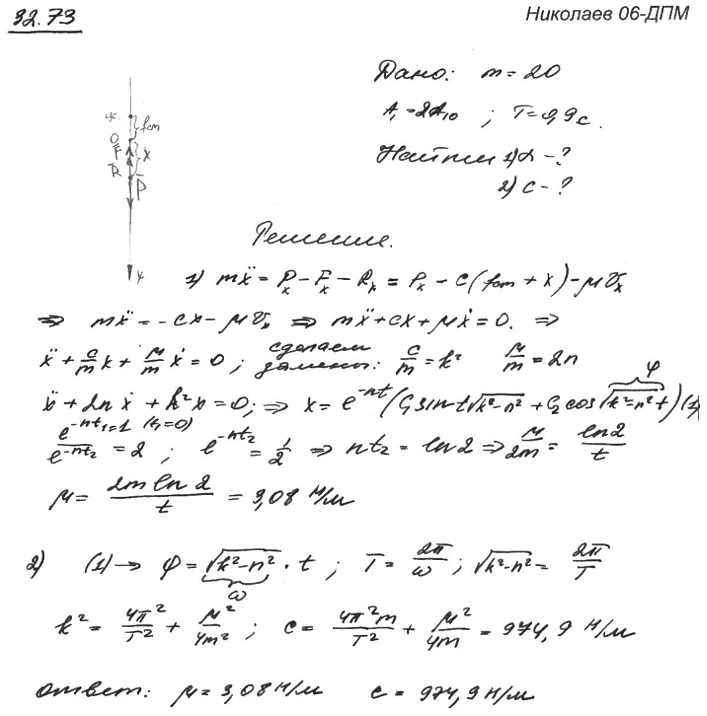 32.73
Николаев 06-ДПМ
Дано: m = 20
A₁ = 2A₁₀ ; T = 0,9 c.
Найти 1) α - ?
2) c - ?
fст
O
F
x
R
P
Решение.
1) mẍ = Pₓ - Fₓ - Rₓ = Pₓ - c(fст + x) - μVₓ
⇒ mẍ = -cx - μVₓ ⇒ mẍ + cx + μẋ = 0. ⇒
ẍ + c/m x + μ/m ẋ = 0 ; сделаем замены: c/m = k² μ/m = 2n
φ
ẍ + 2nẋ + k²x = 0; ⇒ x = e^(-nt) (C₁ sin t√(k²-n²) + C₂ cos √(k²-n²) t) (1)
e^(-nt₁)=1 (t₁=0) / e^(-nt₂) = 2 ; e^(-nt₂) = 1/2 ⇒ nt₂ = ln2 ⇒ μ/2m = ln2/t
μ = 2m ln 2 / t = 3,08 Н/м
2) (1) → φ = √(k²-n²) · t ; T = 2π/ω ; √(k²-n²) = 2π/T
ω
k² = 4π²/T² + μ²/4m² ; c = 4π²m/T² + μ²/4m = 974,9 Н/м
Ответ: μ = 3,08 Н/м c = 974,9 Н/м